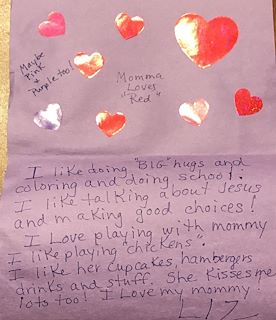 Maybe
Pink
+
Purple too!
Momma
Loves
"Red"
I like doing "BIG" hugs and
coloring and doing school!
I like talking about Jesus
and making good choices!
I Love playing with mommy
I like playing "chickens".
I like her cupcakes, hambergers
drinks and stuff. She kisses me
lots too! I Love my mommy!
LIZ